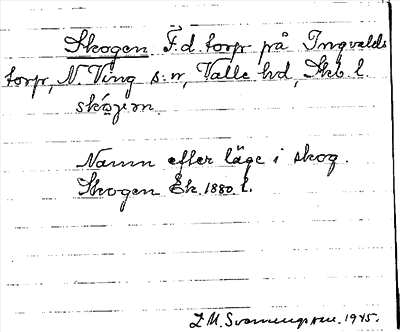 Skogen F.d. torp på Ingvalds
torp, N. Ving s:n, Valle hd, Skb. l.
skógen.
Namn efter läge i skog.
Skogen Ek. 1880. t.
1945.